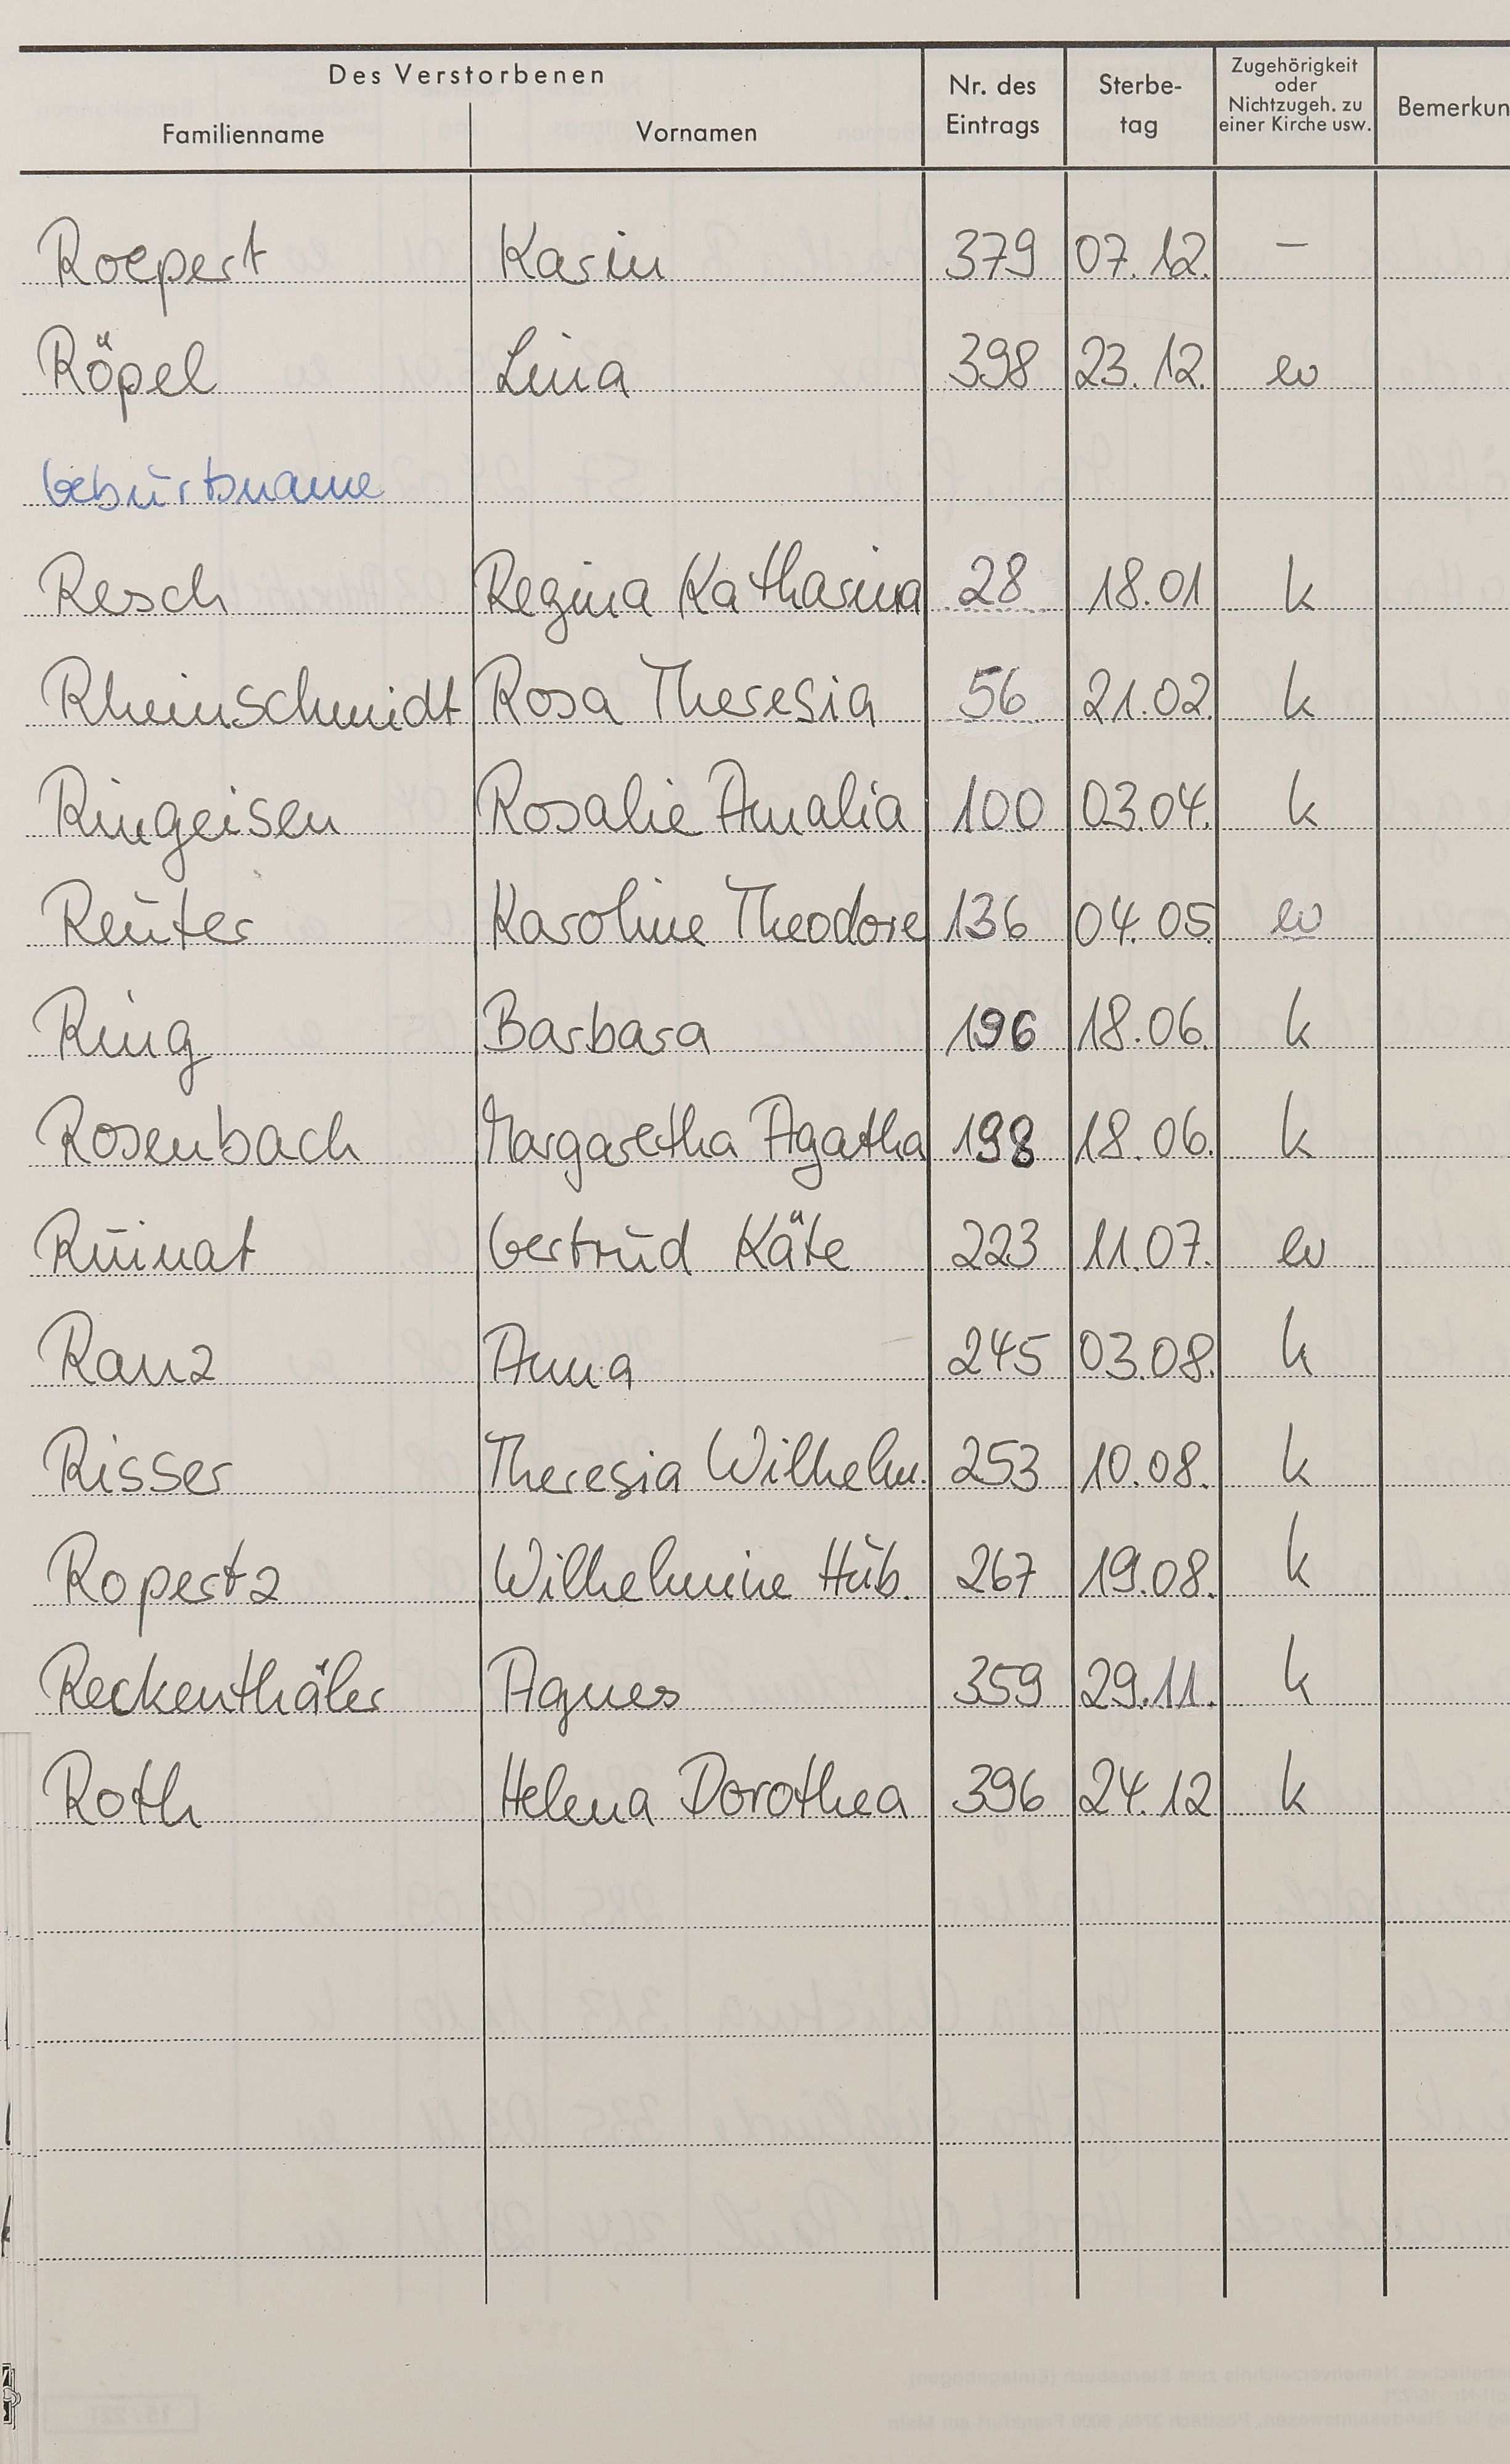 Des Verstorbenen
Familienname Vornamen Nr. des Eintrags Sterbe-tag Zugehörigkeit oder Nichtzugeh. zu einer Kirche usw. Bemerkun
Roepert Karin 379 07.12. –
Röpel Lina 398 23.12. ev
Geburtsname
Resch Regina Katharina 28 18.01 k
Rheinschmidt Rosa Theresia 56 21.02. k
Ringeisen Rosalie Amalia 100 03.04. k
Reuter Karoline Theodore 136 04.05. ev
Ring Barbara 196 18.06. k
Rosenbach Margaretha Agatha 198 18.06. k
Ruinat Gertrud Käte 223 11.07. ev
Ranz Anna 245 03.08. k
Risser Theresia Wilhelm. 253 10.08. k
Ropertz Wilhelmine Hub. 267 19.08. k
Reckenthäler Agnes 359 29.11. k
Roth Helena Dorothea 396 24.12 k